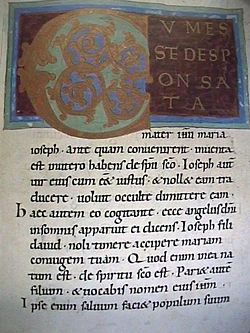 C VMES
SET DESP
ONSA
TA
mater ihu maria
ioseph. ante quam convenirent inventa
est in utero habens de spu sco. Ioseph aut
vir eius cum e& iustus & noll& eam tra
ducere. voluit occulte dimittere eam.
haec autem eo cogitante. ecce angelus dni
in somnis apparuit ei dicens. Ioseph fili
david. noli timere accipere mariam
coniugem tuam. Quod enim in ea na
tum est. de spiritu sco est. Pari& aut
filium. & vocabis nomen eius ihm.
Ipse enim salvum faci& populum suum